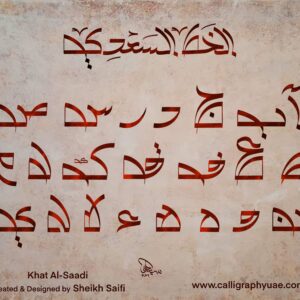 الخط السعدي
ا ب ج د ر س ص
ط ع ف ق ك ل م
ن ه و ء لا ي
Khat Al-Saadi
eated & Designed by Sheikh Saifi
www.calligraphyuae.com